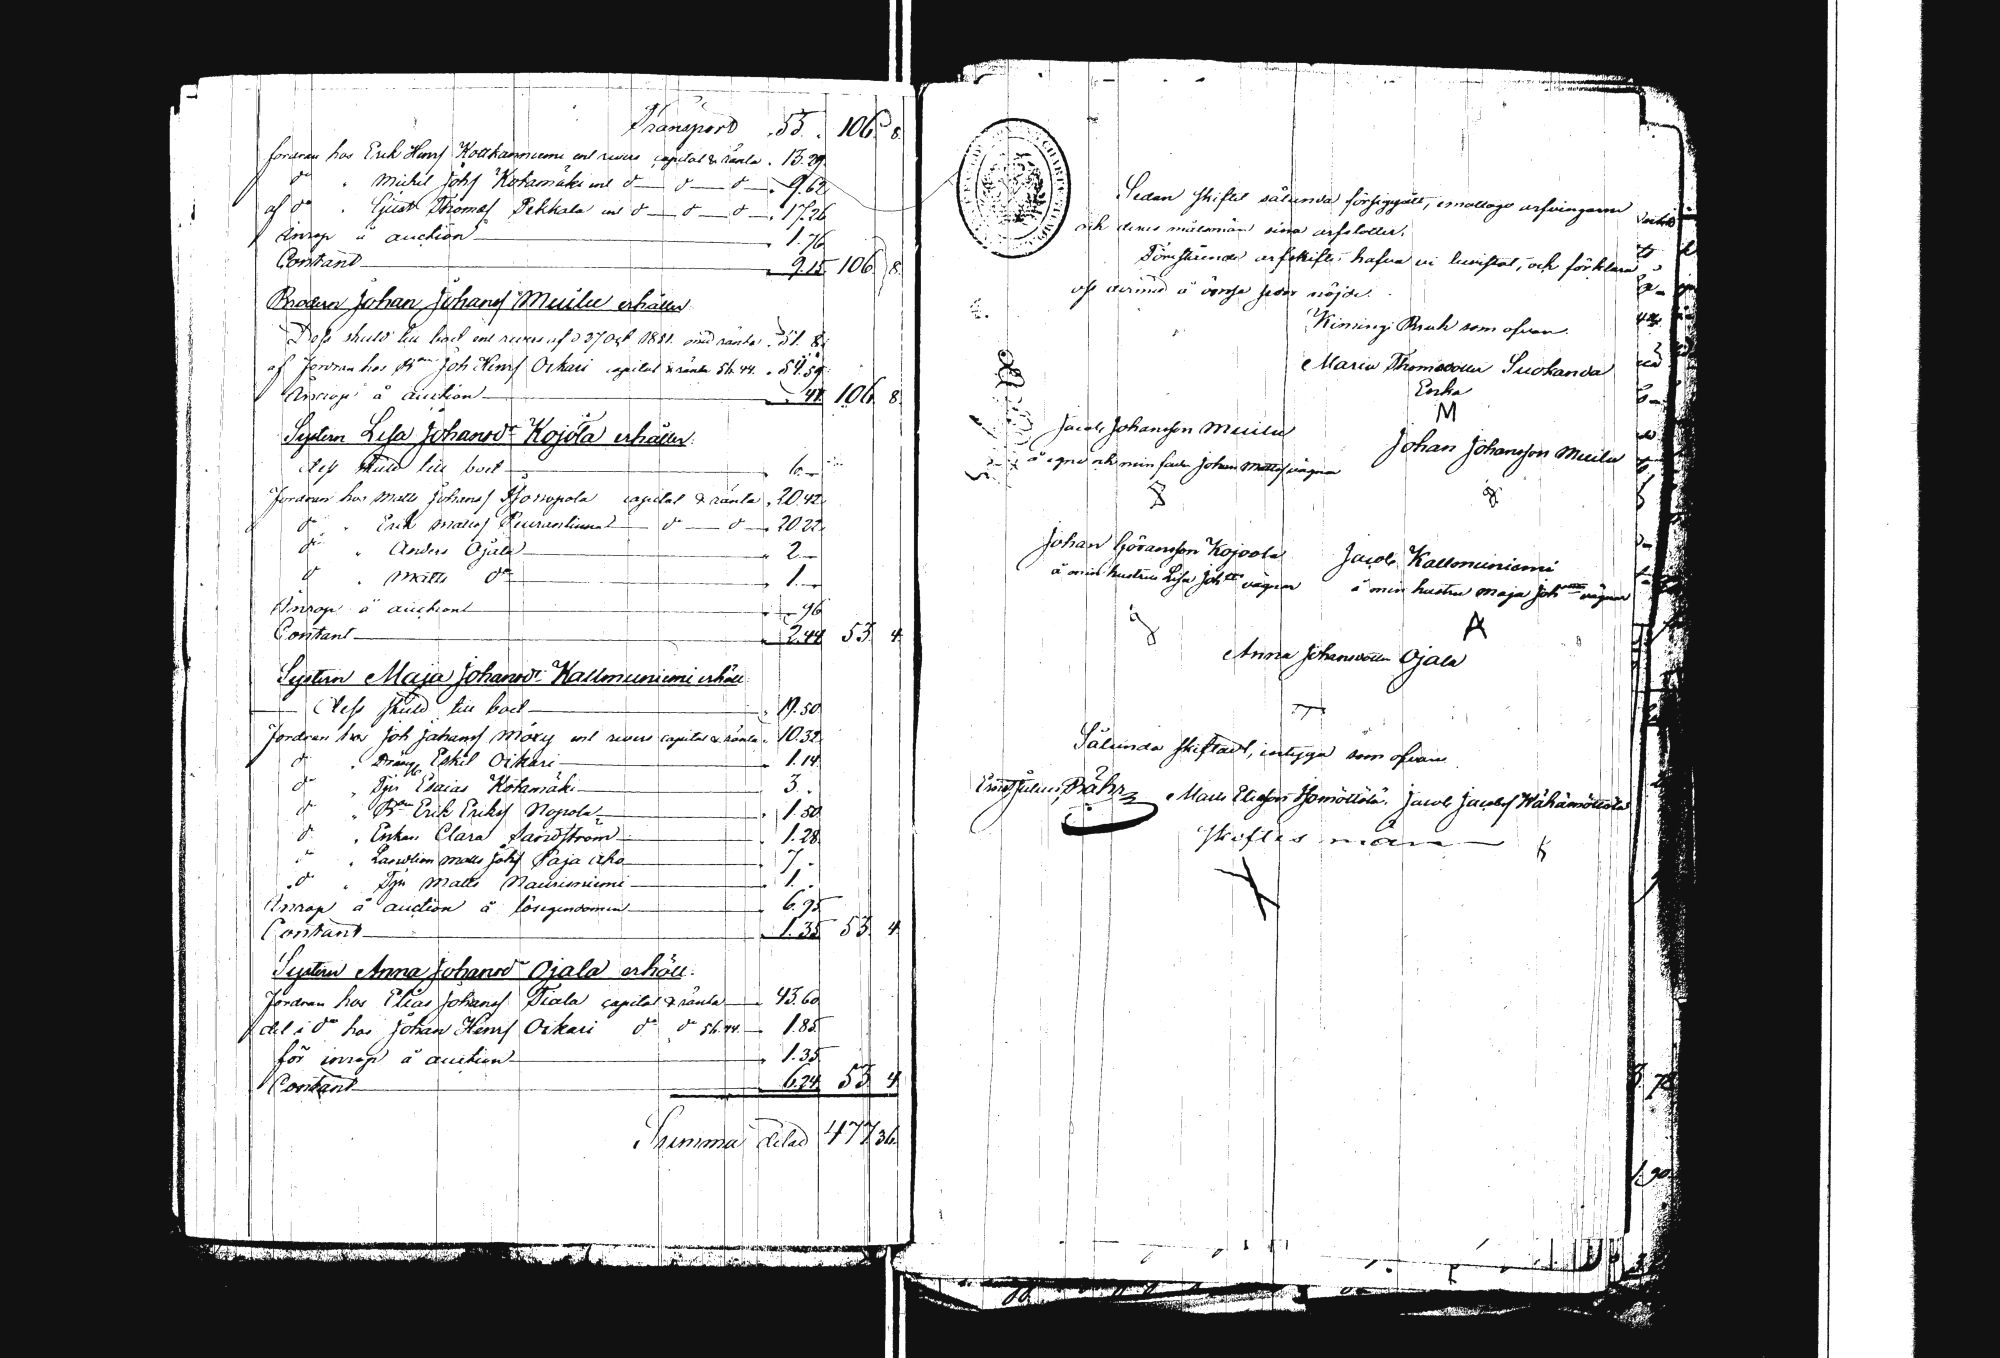 Transport 55. 106. 8.
fordran hos Erik Henrs Kotkaniemi enl revers capital & ränta . 13.29
do " Michel Johs Kotamäki enl d — d — d — 9.62
af do " Gust Thomas Pekkala enl d — d — d — 17.26
Inrop å auction 1.76
Contant 9.15 106. 8.
Brodern Johan Johans Muilu erhåller.
Dess skuld till boet enl revers af d 27 Oct 1881 med ränta . 51. 8.
af fordran hos Bon Joh Henrs Oikari capital & ränta 56.44. 54.59
Inrop å auction 41 106. 8.
Systern Lisa Johansdr Kojola erhåller.
dess skuld till boet 6.—
Fordran hos Matts Johans capital & ränta . 20.42
do " Erik Matts — d — d — 20.22
do " Anders Ojala 2.—
d " Matts do 1.—
Inrop å auction — 96
Contant 2.44 53. 4.
Systern Maja Johansdr Kallmuniemi erhåll.
Dess skuld till boet 19.50
Fordran hos Joh Johans Möxy enl revers capital & ränta . 10.32
d " Dräng Eskil Oikari 1.14
do " Tjn Esaias Kotamäki 3.
d " Bon Erik Eriks Nopola 1.50
d " Enkan Clara Sandström 1.28
d " Matts Johs Pajaaho 7.
d " Tjn Matts Naurisniemi 1.
Inrop å auction å lösegendomen 6.95
Contant 1.35 53. 4.
Systern Anna Johansdr Ojala erhåll.
Fordran hos Elias Johans Tiala capital & ränta 43.60
del i do hos Johan Henrs Oikari do do 56.44. 1.85
för inrop å auction 1.35
Contant 6.24 53 4.
Summa delad 477 36.
Sedan skiftet sålunda försiggått, emottogo arfvingarne
och deras målsmän sina arfslotter.
Förestående arfskifte hafva vi bevistat, och förklara
oss dermed å ömse sidor nöjde.
Kimingi Bruk som ofvan.
Maria Thomasdotter Suokanda
Enka
M
Jacob Johansson Muilu Johan Johansson Muilu
å egna och min fader Johan Matts vägnar
Johan Göransson Kojoola Jacob Kallmuniemi
å min hustru Lisa Johdr vägnar å min hustru Maja Joh vägnar
A
Anna Johansdotter Ojala
Sålunda skiftadt, intyga som ofvan
Ernst Julius Matts Eliasson Jacob Jacobs
skiftes män